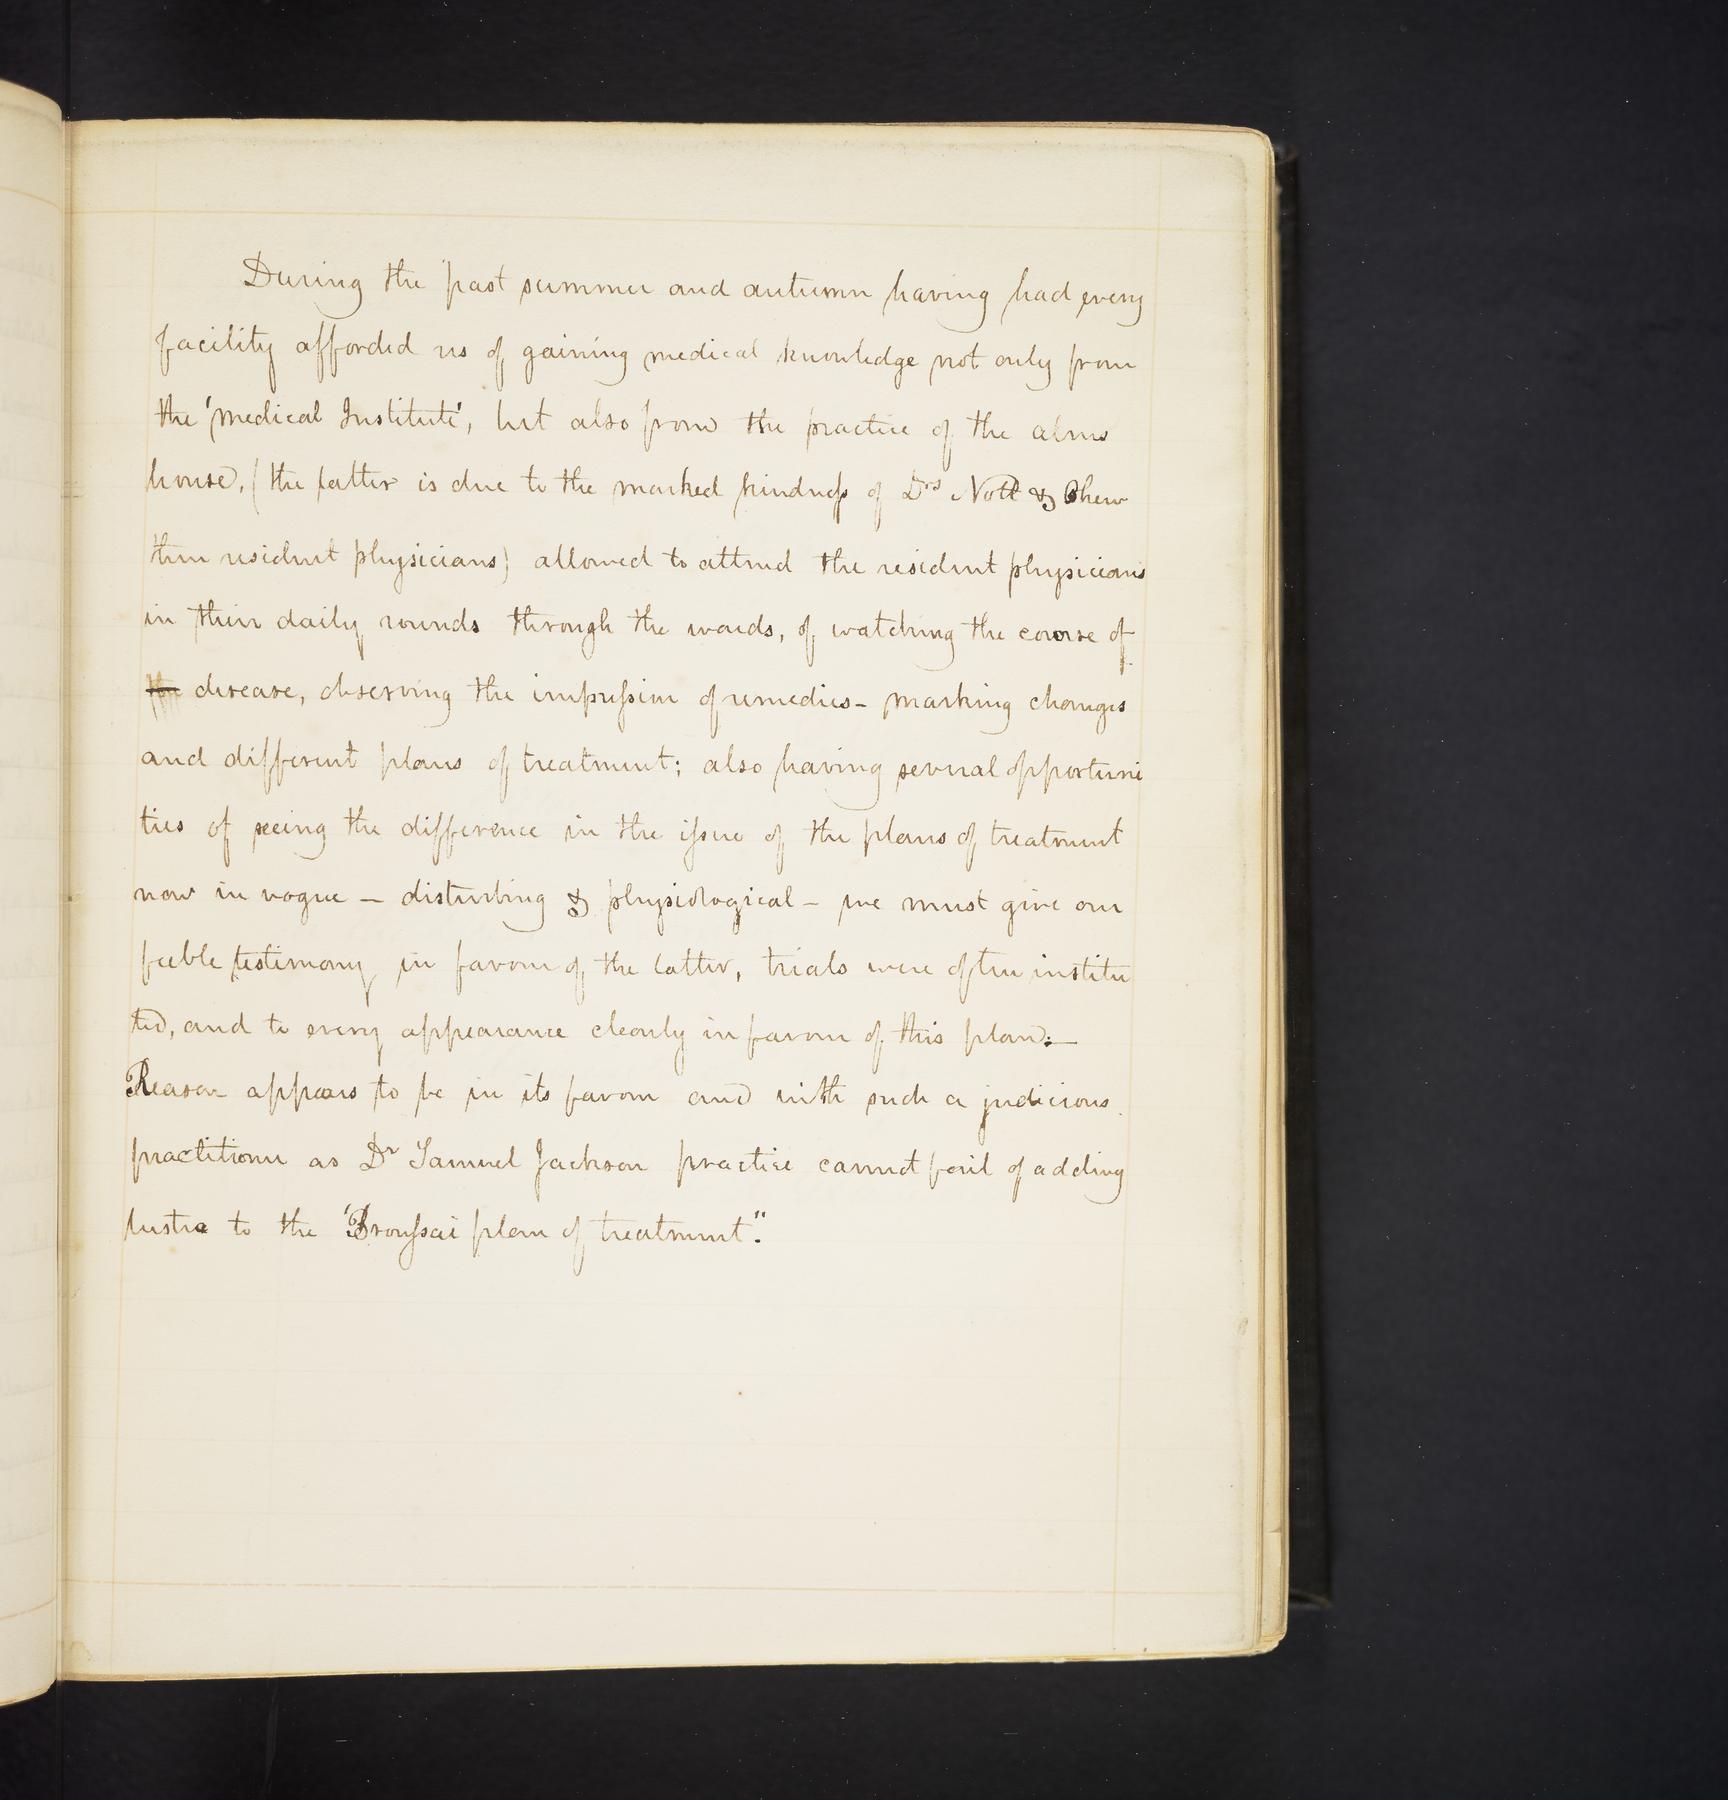 During the past summer and autumn having had every
facility afforded us of gaining medical knowledge not only from
the 'medical Institute', but also from the practice of the alms
house, (the latter is due to the marked kindness of Drs Nott & Chew
then resident physicians) allowed to attend the resident physicians
in their daily rounds through the wards, of watching the course of
the disease, observing the impression of remedies - marking changes
and different plans of treatment; also having several opportuni
ties of seeing the difference in the issue of the plans of treatment
now in vogue - disturbing & physiological - we must give our
feeble testimony in favour of the latter, trials were often institu
ted, and to every appearance clearly in favour of this plan. -
Reason appears to be in its favour and with such a judicious
practitioner as Dr Samuel Jackson practice cannot fail of adding
lustre to the "Broussai plan of treatment".